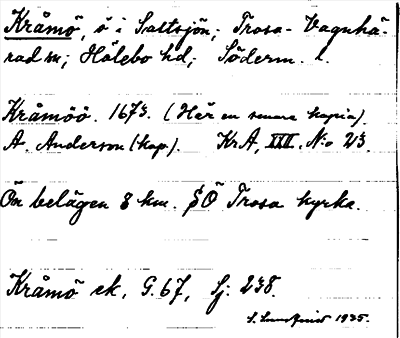 Kråmö, ö i Saltsjön; Trosa-Vagnhä-
rad sn; Hölebo hd; Söderm. l.
Kråmöö. 1673. (Här en senare kopia).
A. Anderson (kop.). KrA, XIII, N:o 23.
Ön belägen 8 km. SÖ Trosa kyrka.
Kråmö ek. G. 67, Sj. 238.
S. Lundqvist 1935.